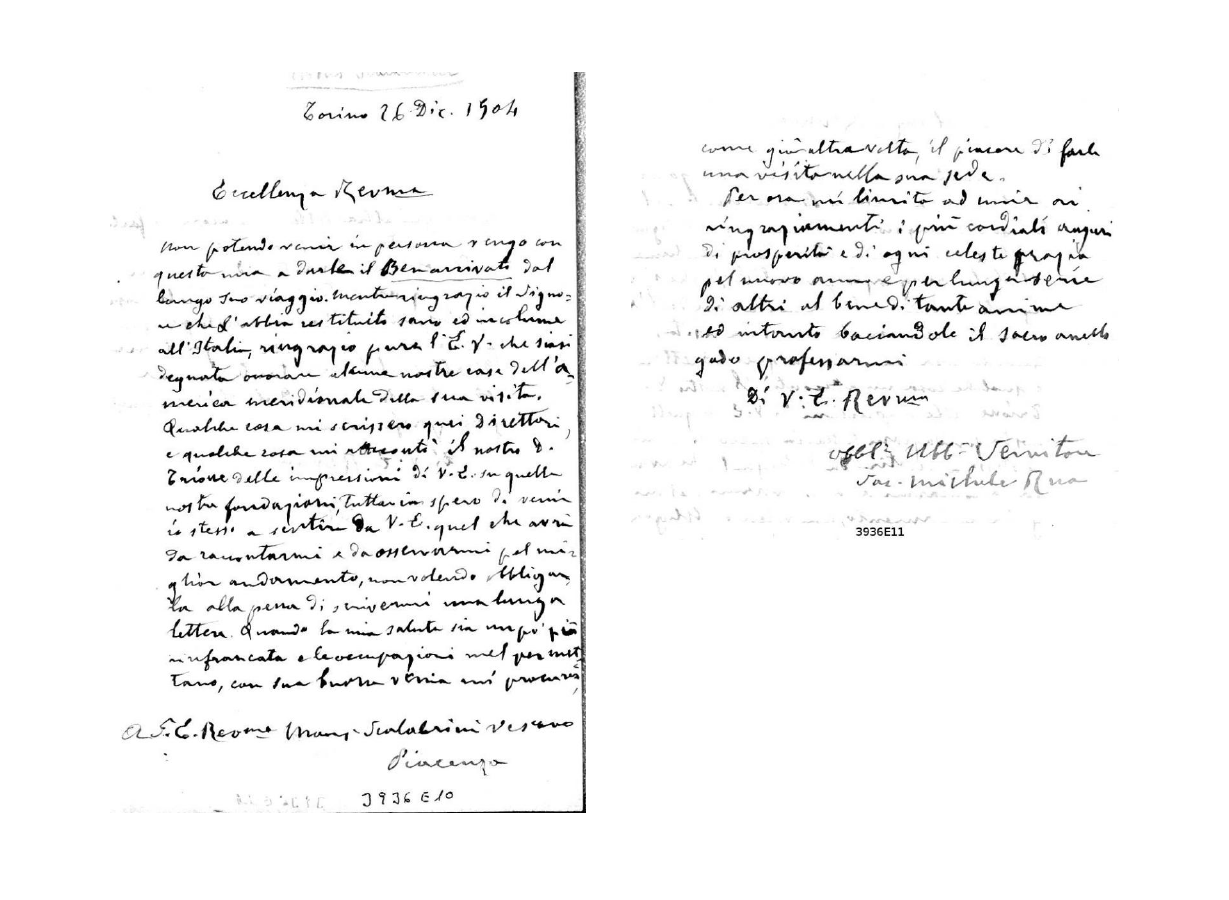 Torino 26 Dic. 1904
Eccellenza Revma
Non potendo venir in persona vengo con
questa mia a darle il Benarrivato dal
lungo suo viaggio. Mentre ringrazio il Signo=
re che l'abbia restituito sano ed incolume
all'Italia, ringrazio pure l'E. V. che siasi
degnata onorare alcune nostre case dell'A=
merica meridionale della sua visita.
Qualche cosa mi scrissero quei Direttori,
e qualche cosa mi raccontò il nostro D.
Trione delle impressioni di V. E. su quelle
nostre fondazioni, tuttavia spero di venir
io stesso a sentire da V. E. quel che avrà
da raccontarmi e da osservarmi pel mi=
glior andamento, non volendo obbligar=
la alla pena di scrivermi una lunga
lettera. Quando la mia salute sia un po' più
rinfrancata e le occupazioni mel permet=
tano, con sua buona venia mi procurerò,
A S. E. Revma Mons. Scalabrini Vescovo
Piacenza
3936 E10
come già altra volta, il piacere di farle
una visita nella sua sede.
Per ora mi limito ad unire ai
ringraziamenti i più cordiali auguri
di prosperità e di ogni celeste grazia
pel nuovo anno e per lunga serie
di altri al bene di tante anime
ed intanto baciandole il sacro anello
godo professarmi
Di V. E. Revma
Obbl. Ubb. Servitore
Sac. Michele Rua
3936E11